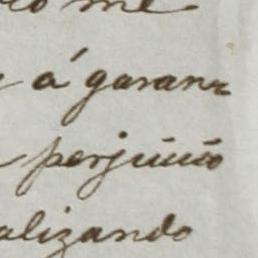 me
á garan-
perjuicio
alizando